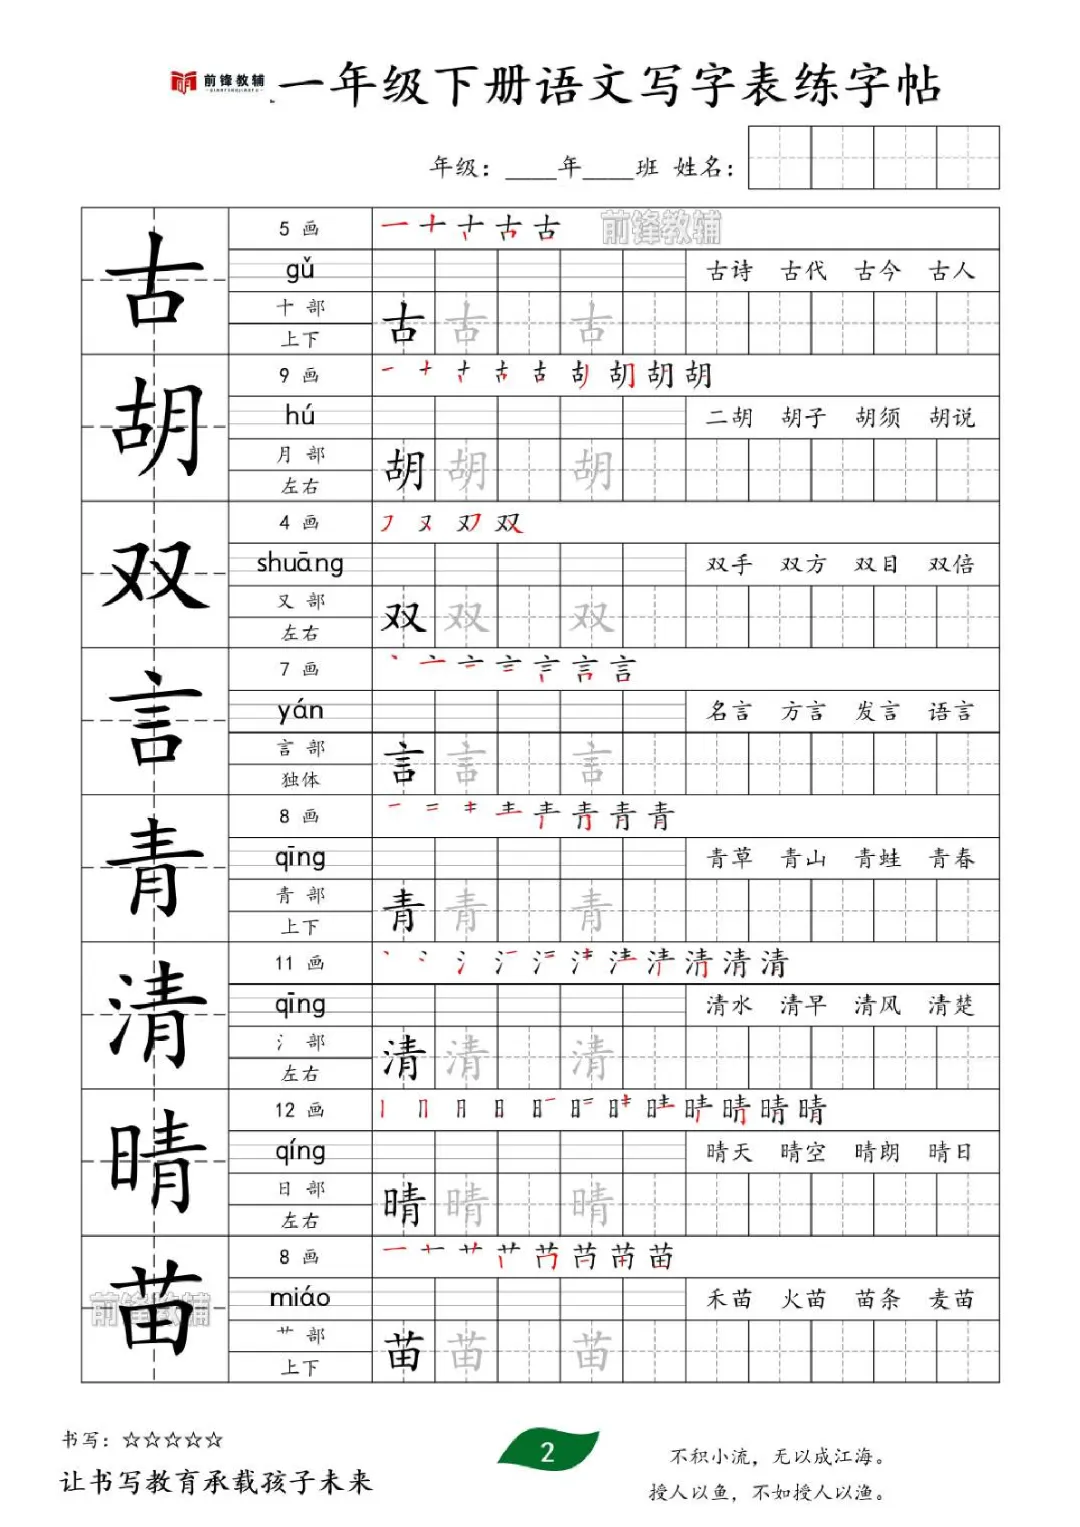 前锋教辅 一年级下册语文写字表练字帖
年级：____年____班 姓名：
古
5 画
一 十 古 古
前锋教辅
gǔ
古诗 古代 古今 古人
十 部
上下
古 古 古
胡
9 画
一 十 古 古 胡 胡
hú
二胡 胡子 胡须 胡说
月 部
左右
胡 胡 胡
双
4 画
フ 又 双
shuāng
双手 双方 双目 双倍
又 部
左右
双 双 双
言
7 画
丶 亠 言 言
yán
名言 方言 发言 语言
言 部
独体
言 言 言
青
8 画
一 二 青 青 青
qīng
青草 青山 青蛙 青春
青 部
上下
青 青 青
清
11 画
丶 冫 氵 清 清 清
qīng
清水 清早 清风 清楚
氵 部
左右
清 清 清
晴
12 画
丨 冂 月 日 晴 晴 晴
qíng
晴天 晴空 晴朗 晴日
日 部
左右
晴 晴 晴
苗
8 画
一 艹 苗 苗
前锋教辅
miáo
禾苗 火苗 苗条 麦苗
艹 部
上下
苗 苗 苗
书写：☆☆☆☆☆
让书写教育承载孩子未来
2
不积小流，无以成江海。
授人以鱼，不如授人以渔。